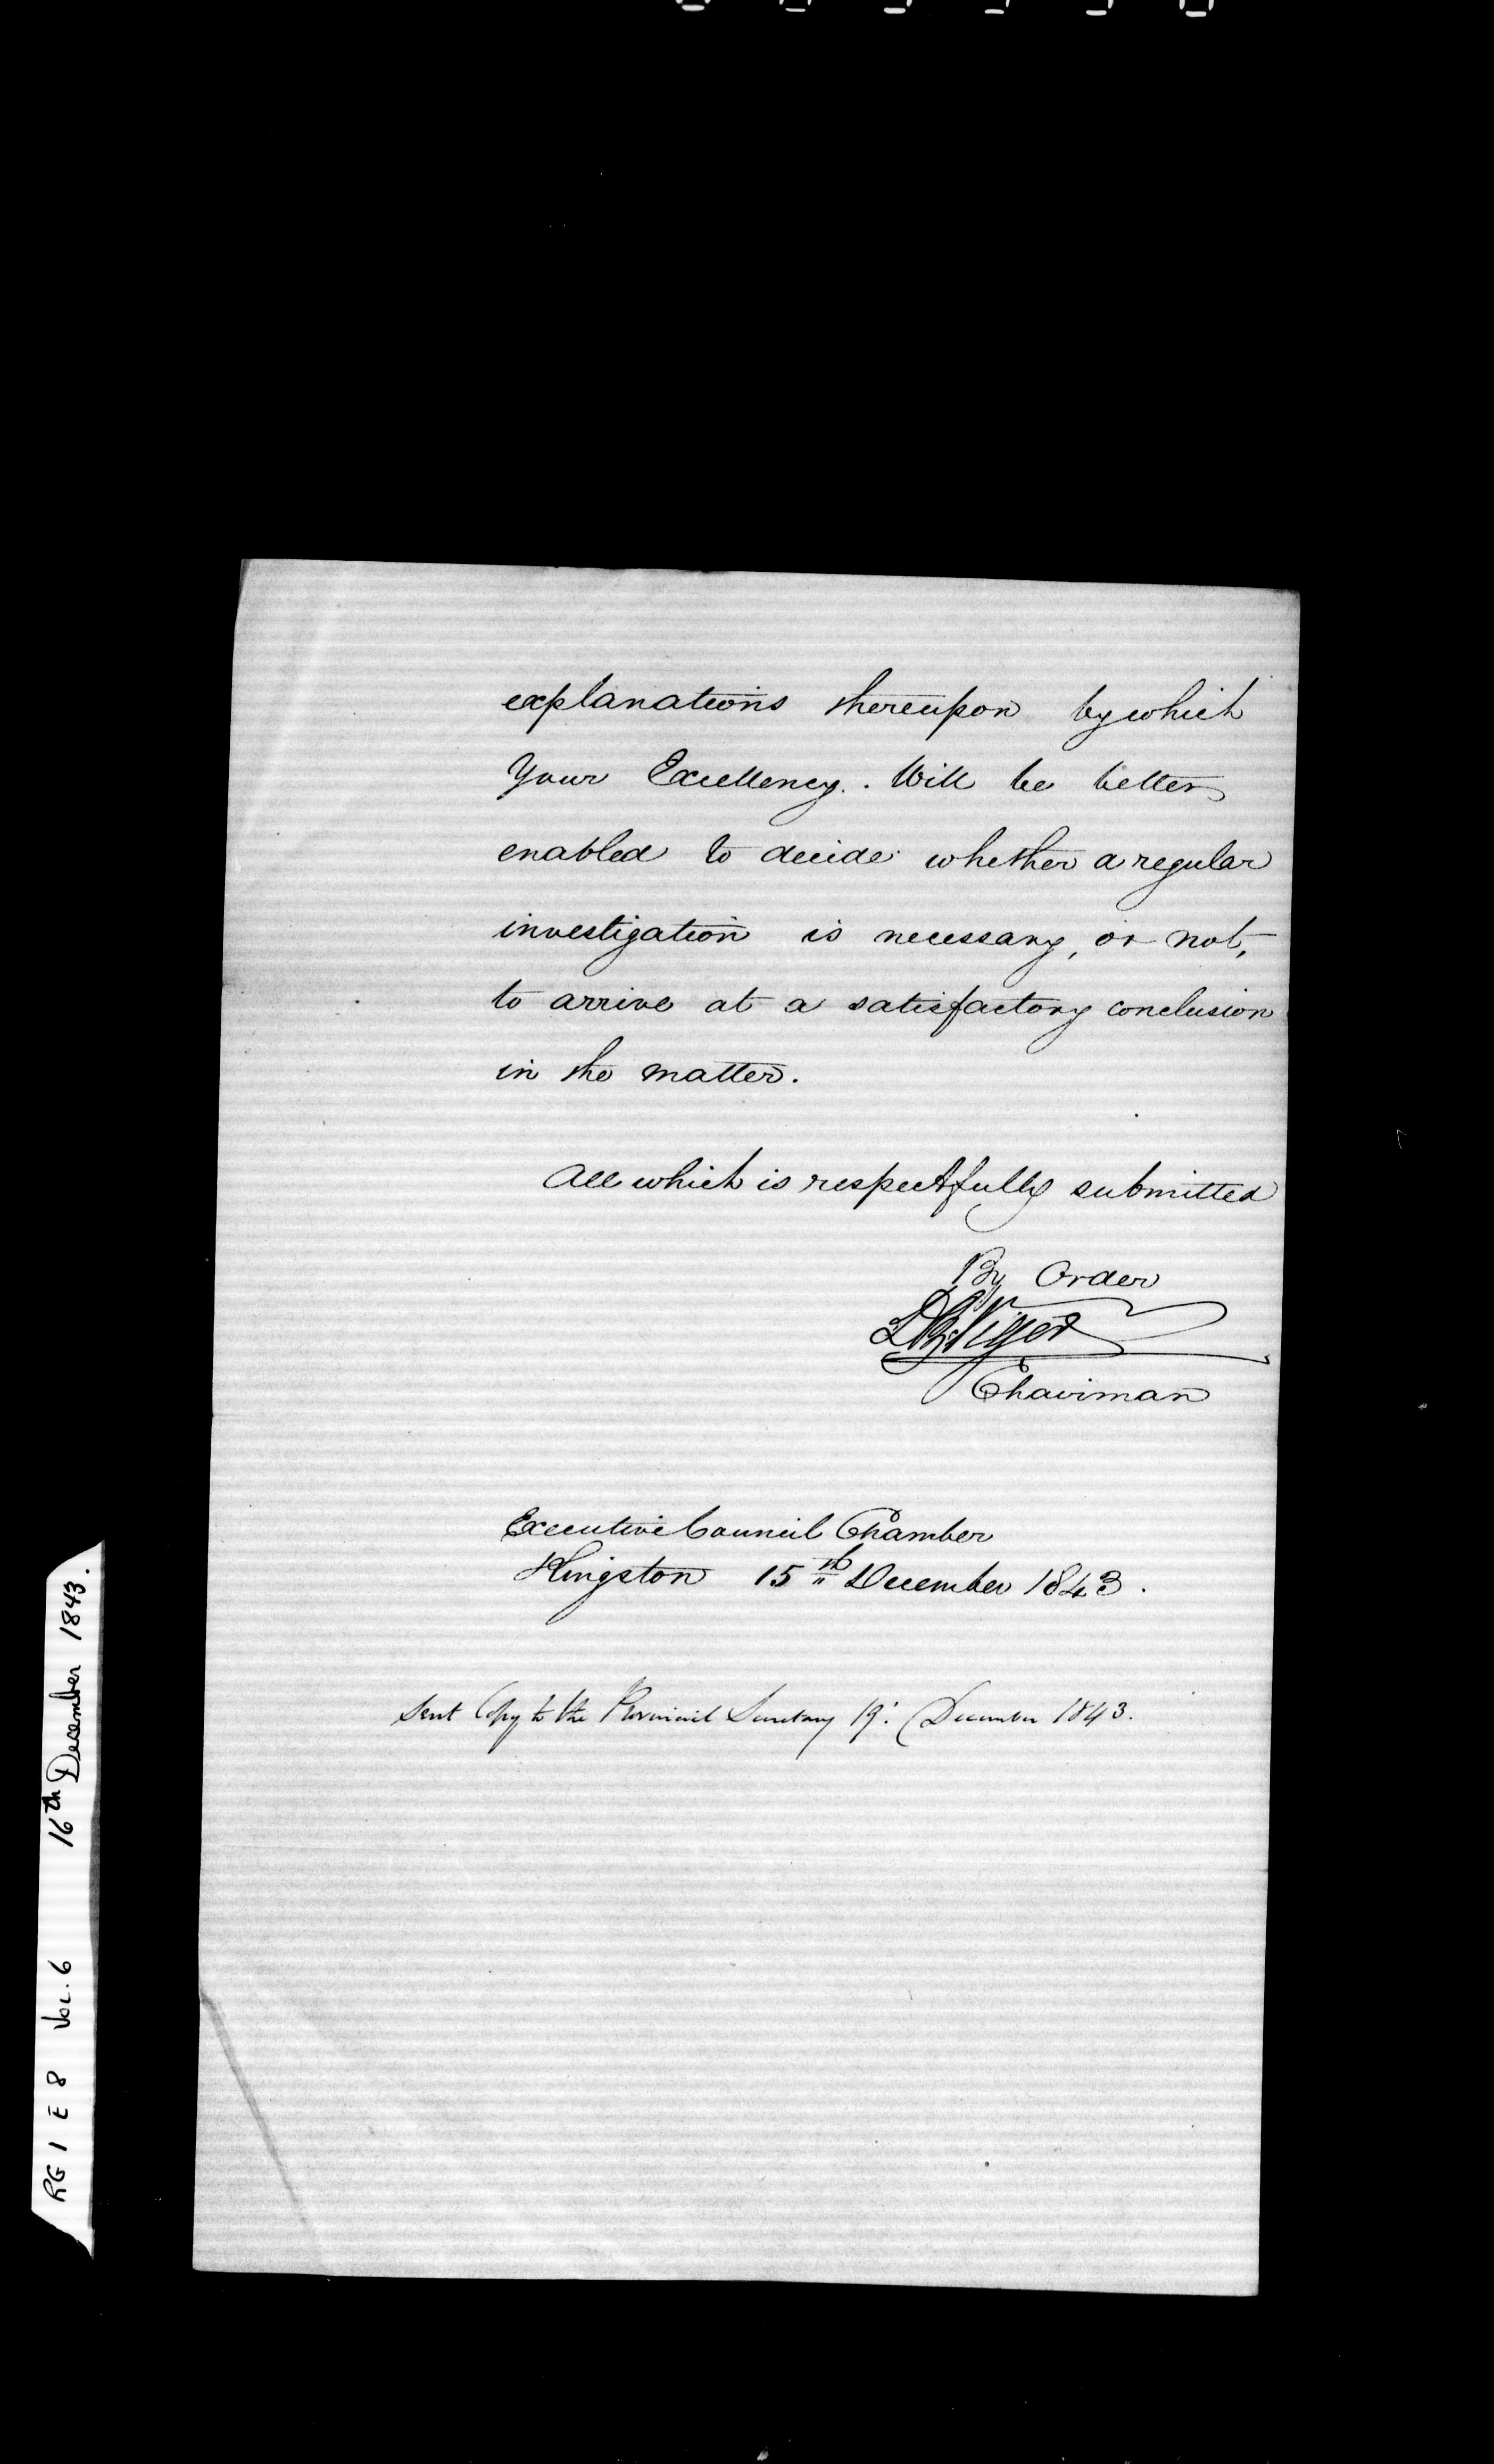 explanations thereupon by which
Your Excellency. Will be better
enabled to decide whether a regular
investigation is necessary, or not,
to arrive at a satisfactory conclusion
in the matter.
All which is respectfully submitted
By Order
D B Viger
Chairman
Executive Council Chamber
Kingston 15th December 1843.
Sent Copy to the Provincial Secretary 19. December 1843.
RG 1 E 8 Vol. 6 16th December 1843.